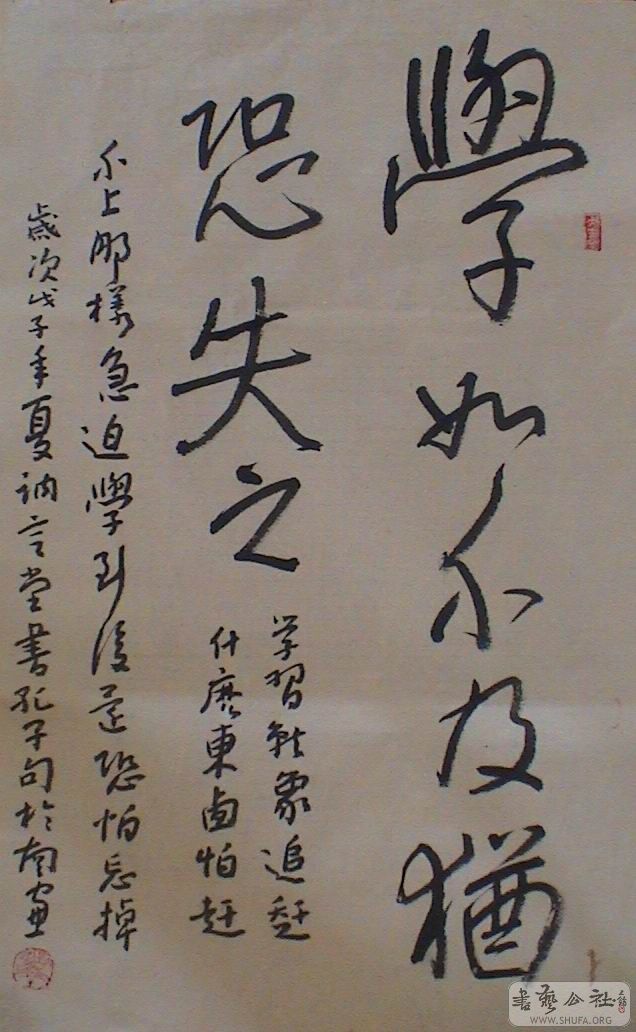 學如不及猶
恐失之
学習就象追赶
什麼東西怕赶
不上那樣急迫學到後還恐怕忘掉
歲次戊子年夏訥言堂書孔子句於南窗
書藝公社
WWW.SHUFA.ORG